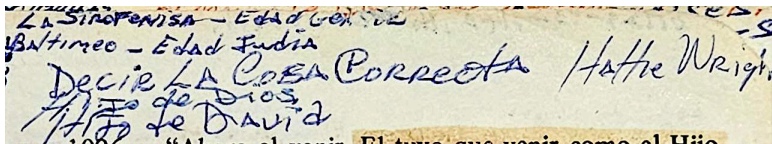 La Sirofenisa - Edad Gentil
Baltimeo - Edad Judia
Decir La Cosa Correcta Hattie Wrigh
Hijo de Dios
Hijo de David
"Ahora al venir, El tuvo que venir como el Hijo